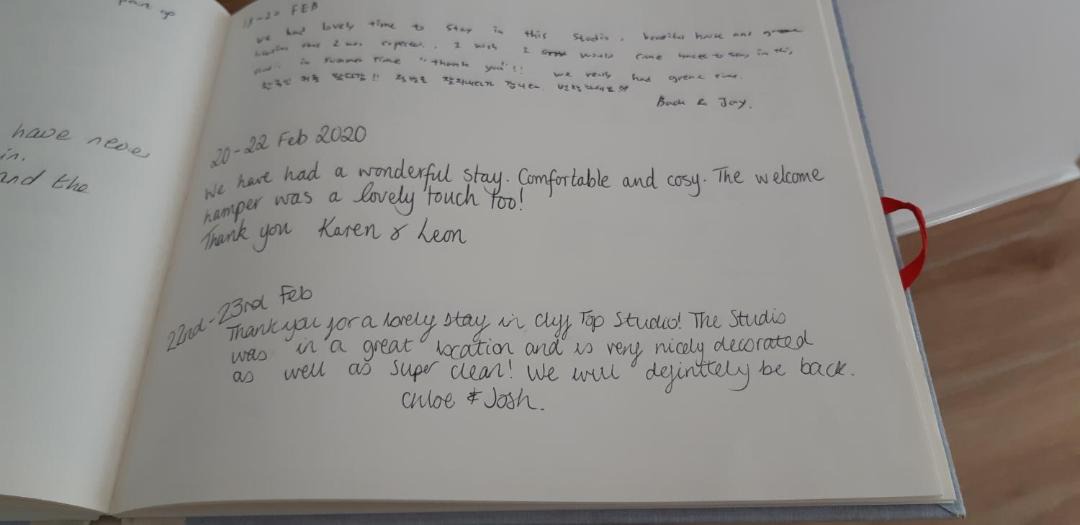 have never
in.
and the
18-20 FEB
We had lovely time to stay in this studio. beautiful house and
garden than I was expected. I wish I would come back to stay in this
in summer time "thank you"!! We really had great time.
Back & Jay.
20-22 Feb 2020
We have had a wonderful stay. Comfortable and cosy. The welcome
hamper was a lovely touch too!
Thank you Karen & Leon
22nd-23rd Feb
Thank you for a lovely stay in Cliff Top Studio! The Studio
was in a great location and is very nicely decorated
as well as super clean! We will definitely be back.
Chloe & Josh.